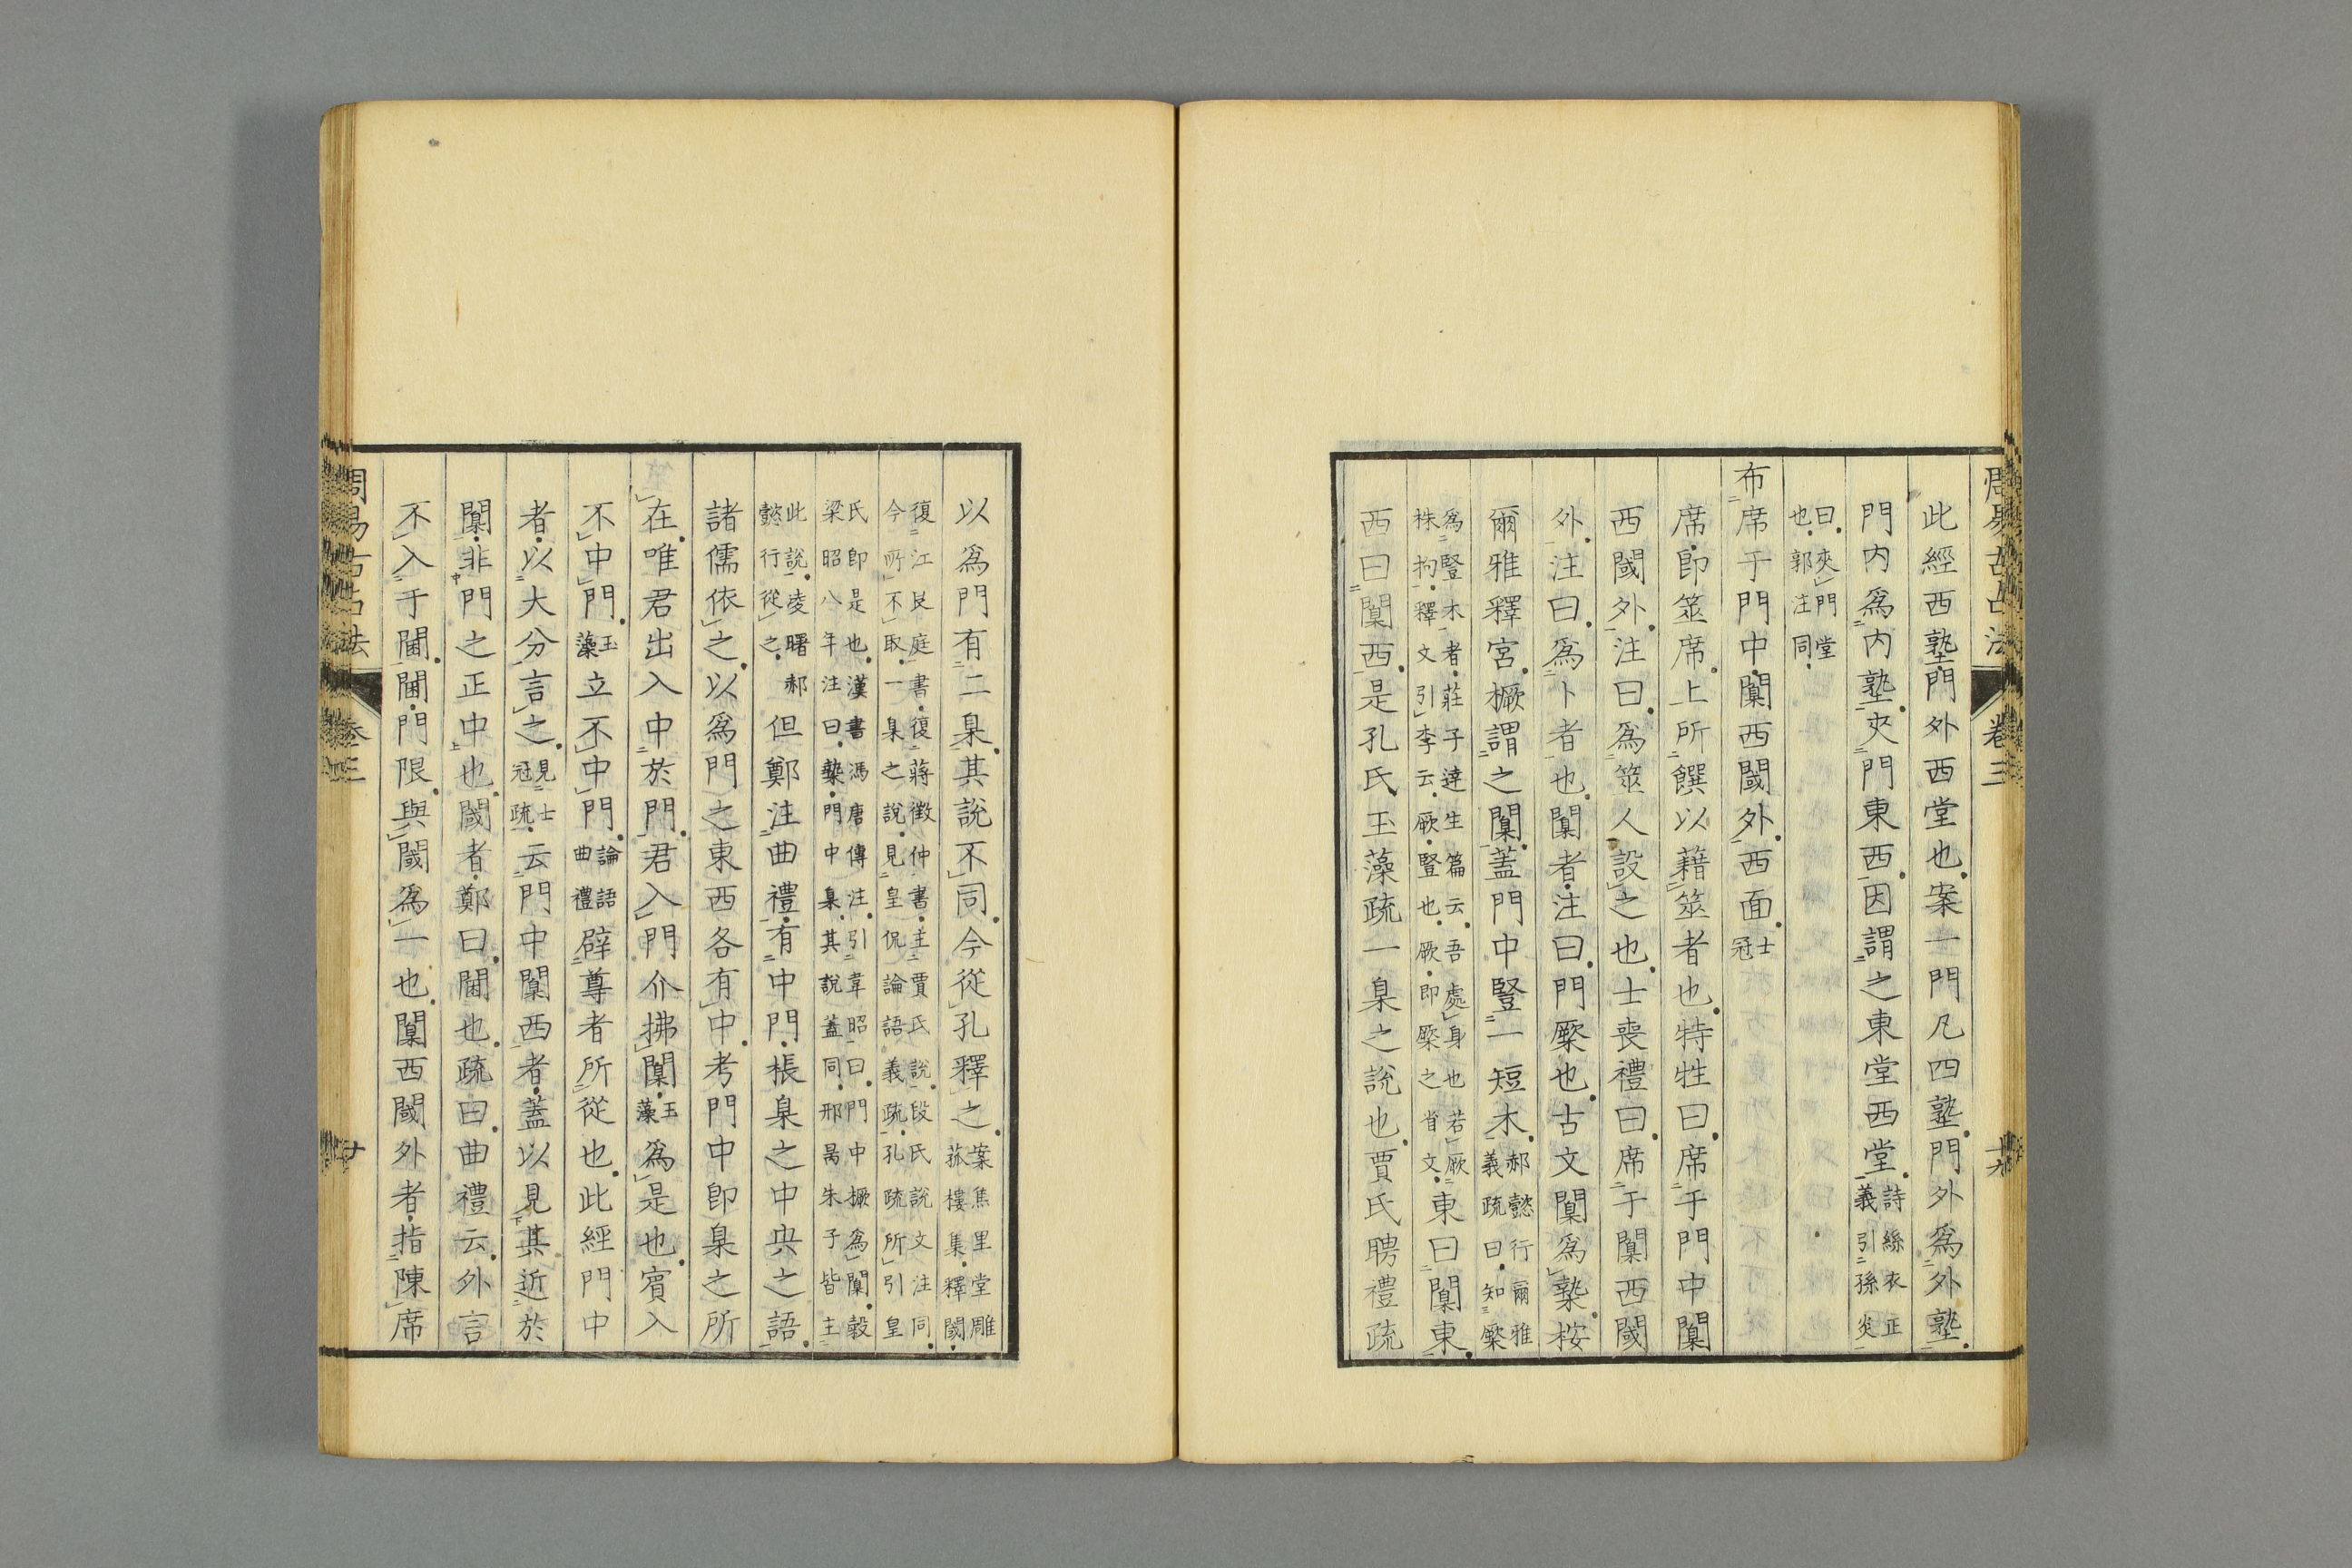 周易古占法 卷三 十九
此經西塾門外西堂也案一門凡四塾門外爲外塾
門内爲内塾夾門東西因謂之東堂西堂詩絲衣正義引孫炎
曰夾門堂也郭注同
布席于門中闑西閾外西面士冠
席即筮席上所饌以藉筮者也特牲曰席于門中闑
西閾外注曰爲筮人設之也士喪禮曰席于闑西閾
外注曰爲卜者也闑者注曰門橜也古文闑爲槷桉
爾雅釋宮橛謂之闑蓋門中豎一短木郝懿行爾雅義疏曰知橜
爲豎木者莊子達生篇云吾處身也若厥株拘釋文引李云厥豎也厥即橜之省文東曰闑東
西曰闑西是孔氏玉藻疏一臬之說也賈氏聘禮疏
以爲門有二臬其說不同今從孔釋之案焦里堂雕菰樓集釋閾
復江艮庭書復蔣徵仲書主賈氏說段氏說文注同今所不取一臬之說見皇侃論語義疏孔疏所引皇
氏即是也漢書馮唐傳注引韋昭曰門中橛爲闑穀梁昭八年注曰槷門中臬其說蓋同邢昺朱子皆主
此說凌曙郝懿行從之但鄭注曲禮有中門棖臬之中央之語
諸儒依之以爲門之東西各有中考門中即臬之所
在唯君出入中於門君入門介拂闑玉藻爲是也賓入
不中門玉藻立不中門論語曲禮辟尊者所從也此經門中
者以大分言之見士冠疏云門中闑西者蓋以見其近於
闑非門之正中也閾者鄭曰閫也疏曰曲禮云外言
不入于閫閫門限與閾爲一也闑西閾外者指陳席
周易古占法 卷三 廿